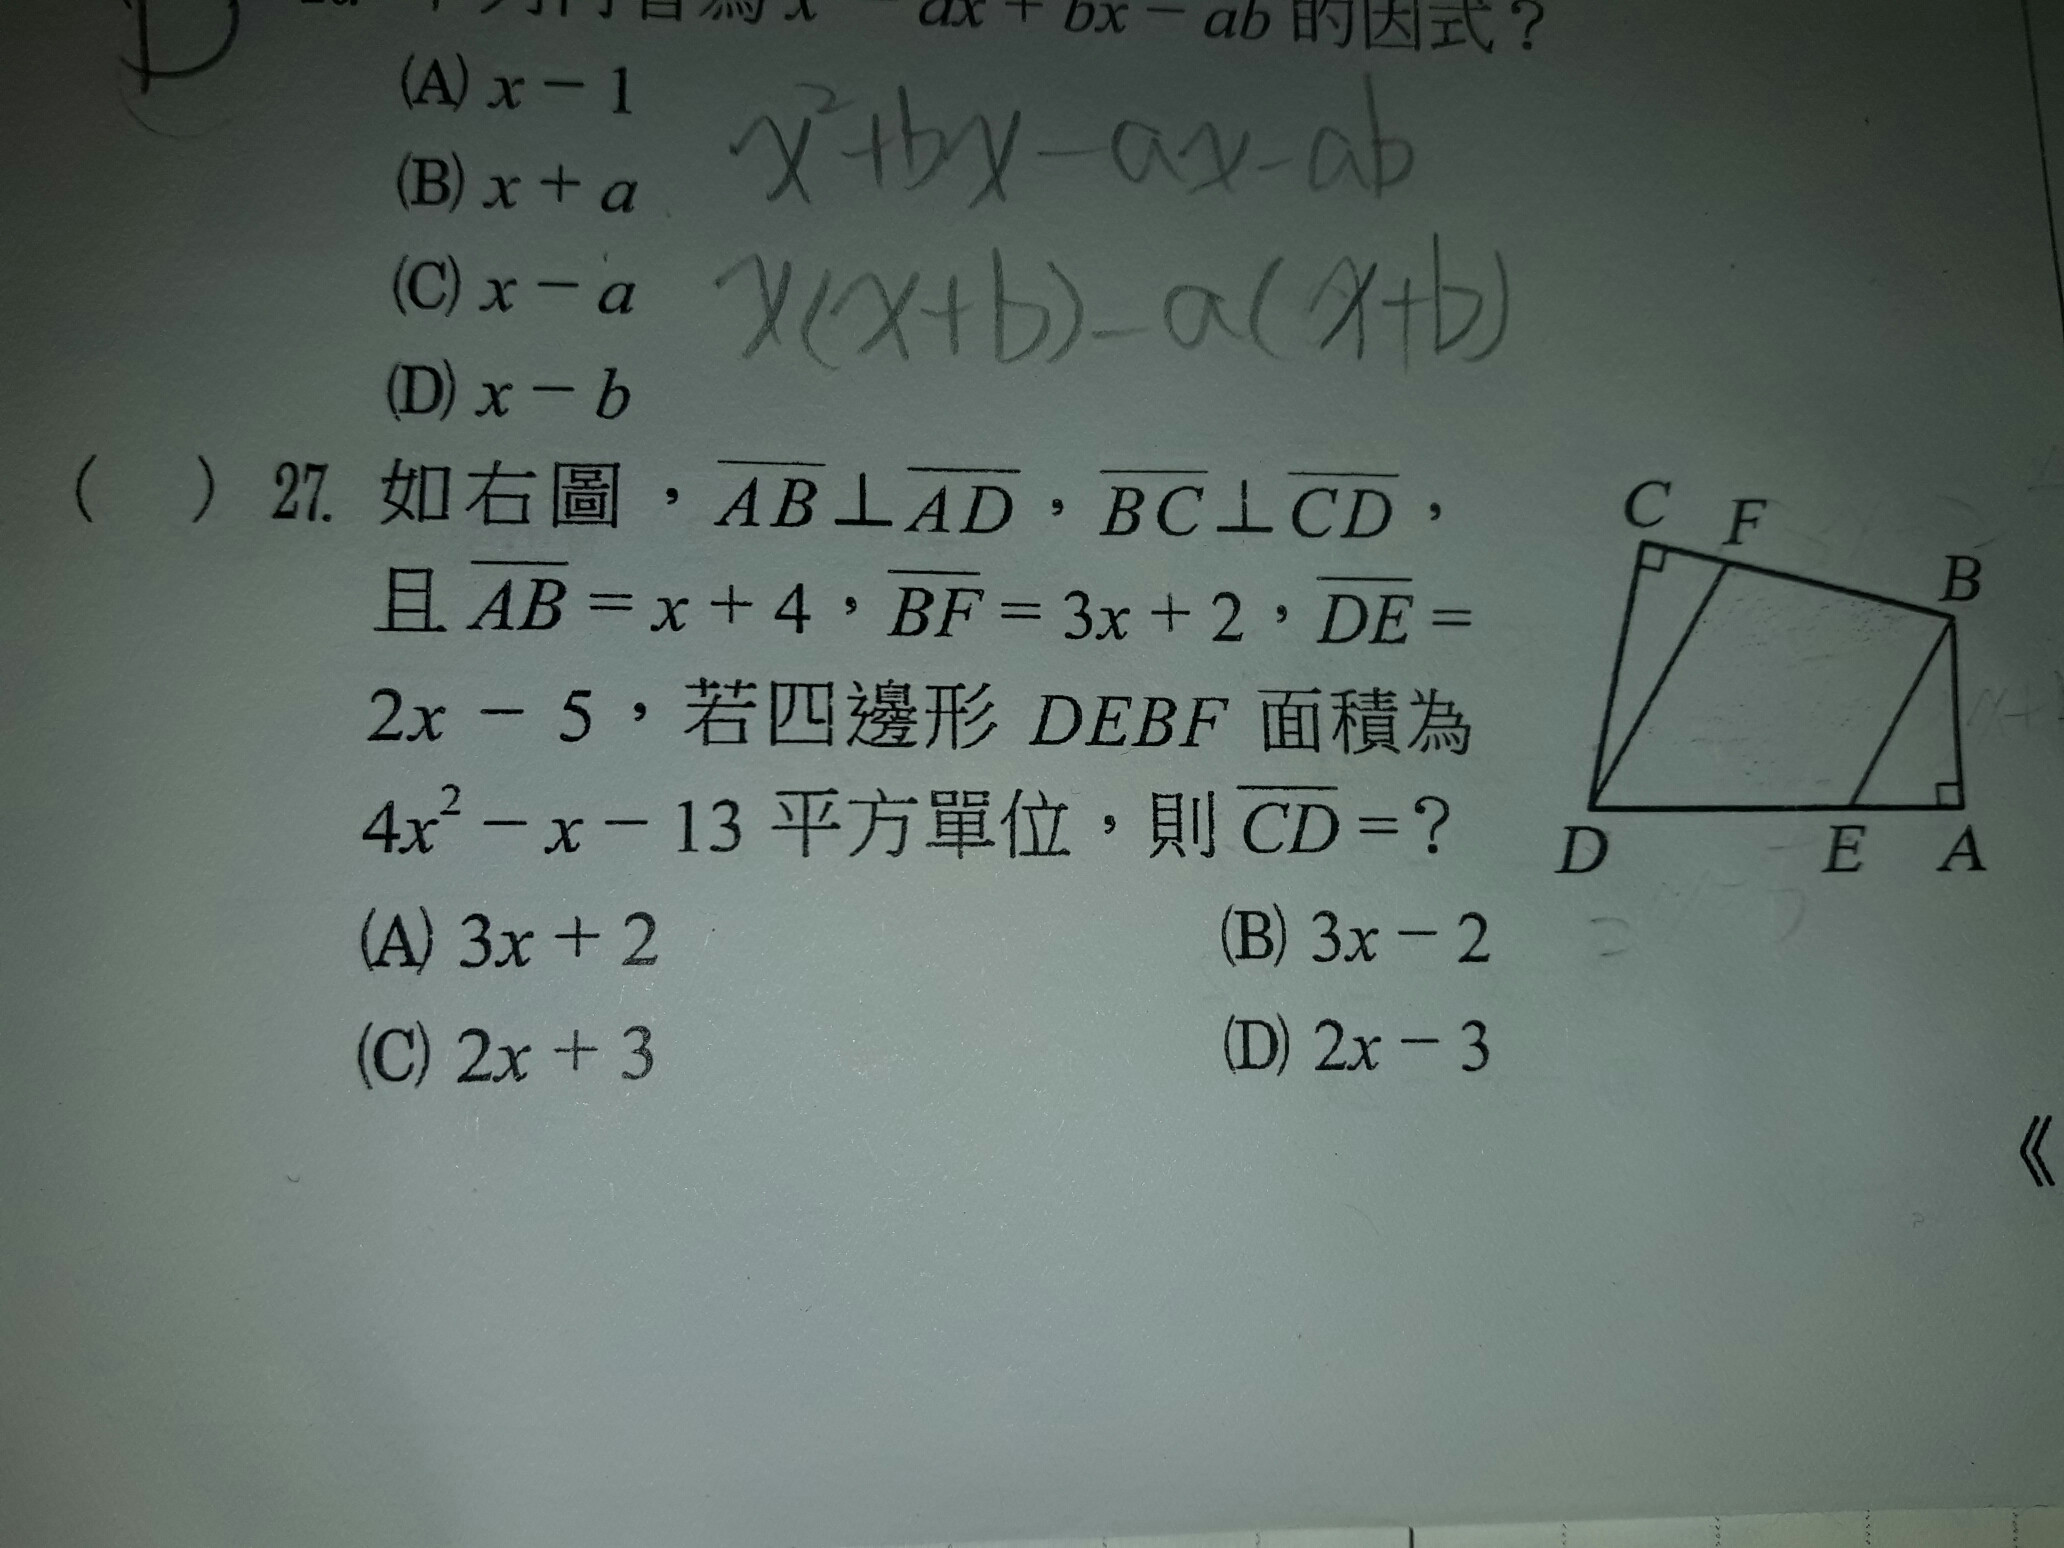 ax + bx − ab 的因式？
(A) x − 1
(B) x + a
(C) x − a
(D) x − b
x²+bx−ax−ab
x(x+b)−a(x+b)
( ) 27. 如右圖，AB⊥AD，BC⊥CD，
且 AB = x + 4，BF = 3x + 2，DE =
2x − 5，若四邊形 DEBF 面積為
4x² − x − 13 平方單位，則 CD = ?
(A) 3x + 2 (B) 3x − 2
(C) 2x + 3 (D) 2x − 3
C F
B
D E A
《